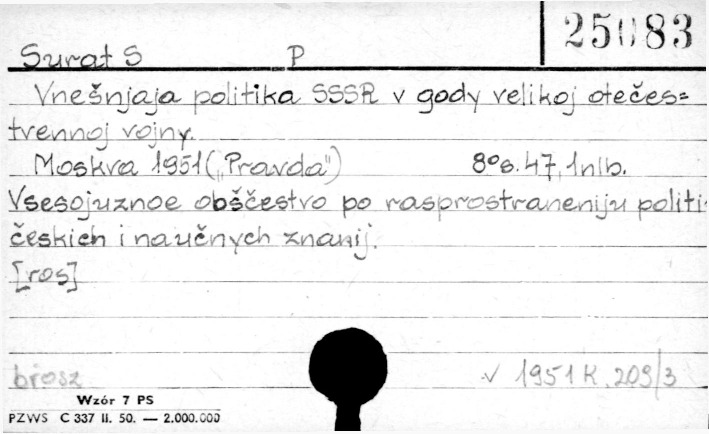 25083
Surat S P
Vnešnjaja politika SSSR v gody velikoj otečes=
tvennoj vojny.
Moskva 1951 („Pravda") 8° s. 47, 1 nlb.
Vsesojuznoe obščestvo po rasprostraneniju politi-
českich i naučnych znanij.
[ros]
brosz v 1951 K. 209/3
Wzór 7 PS
PZWS C 337 II. 50. — 2.000.000